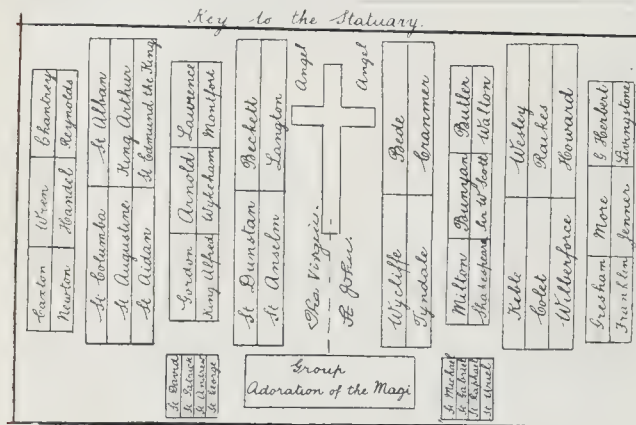 Key to the Statuary.
Caxton Wren Chantrey
Newton Handel Reynolds
St Columba St Alban
St Augustine King Arthur
St Aidan St Edmund the King
Gordon Arnold Lawrence
King Alfred Wykeham Montfort
St Dunstan Beckett
St Anselm Langton
The Virgin. Angel
St John Angel
Wycliffe Bede
Tyndale Cranmer
Milton Bunyan Butler
Shakespeare Sir W Scott Walton
Keble Wesley
Colet Raikes
Wilberforce Howard
Gresham More G Herbert
Franklin Jenner Livingstone
St David
St Patrick
St Andrew
St George
Group
Adoration of the Magi
St Michael
St Gabriel
St Raphael
St Uriel